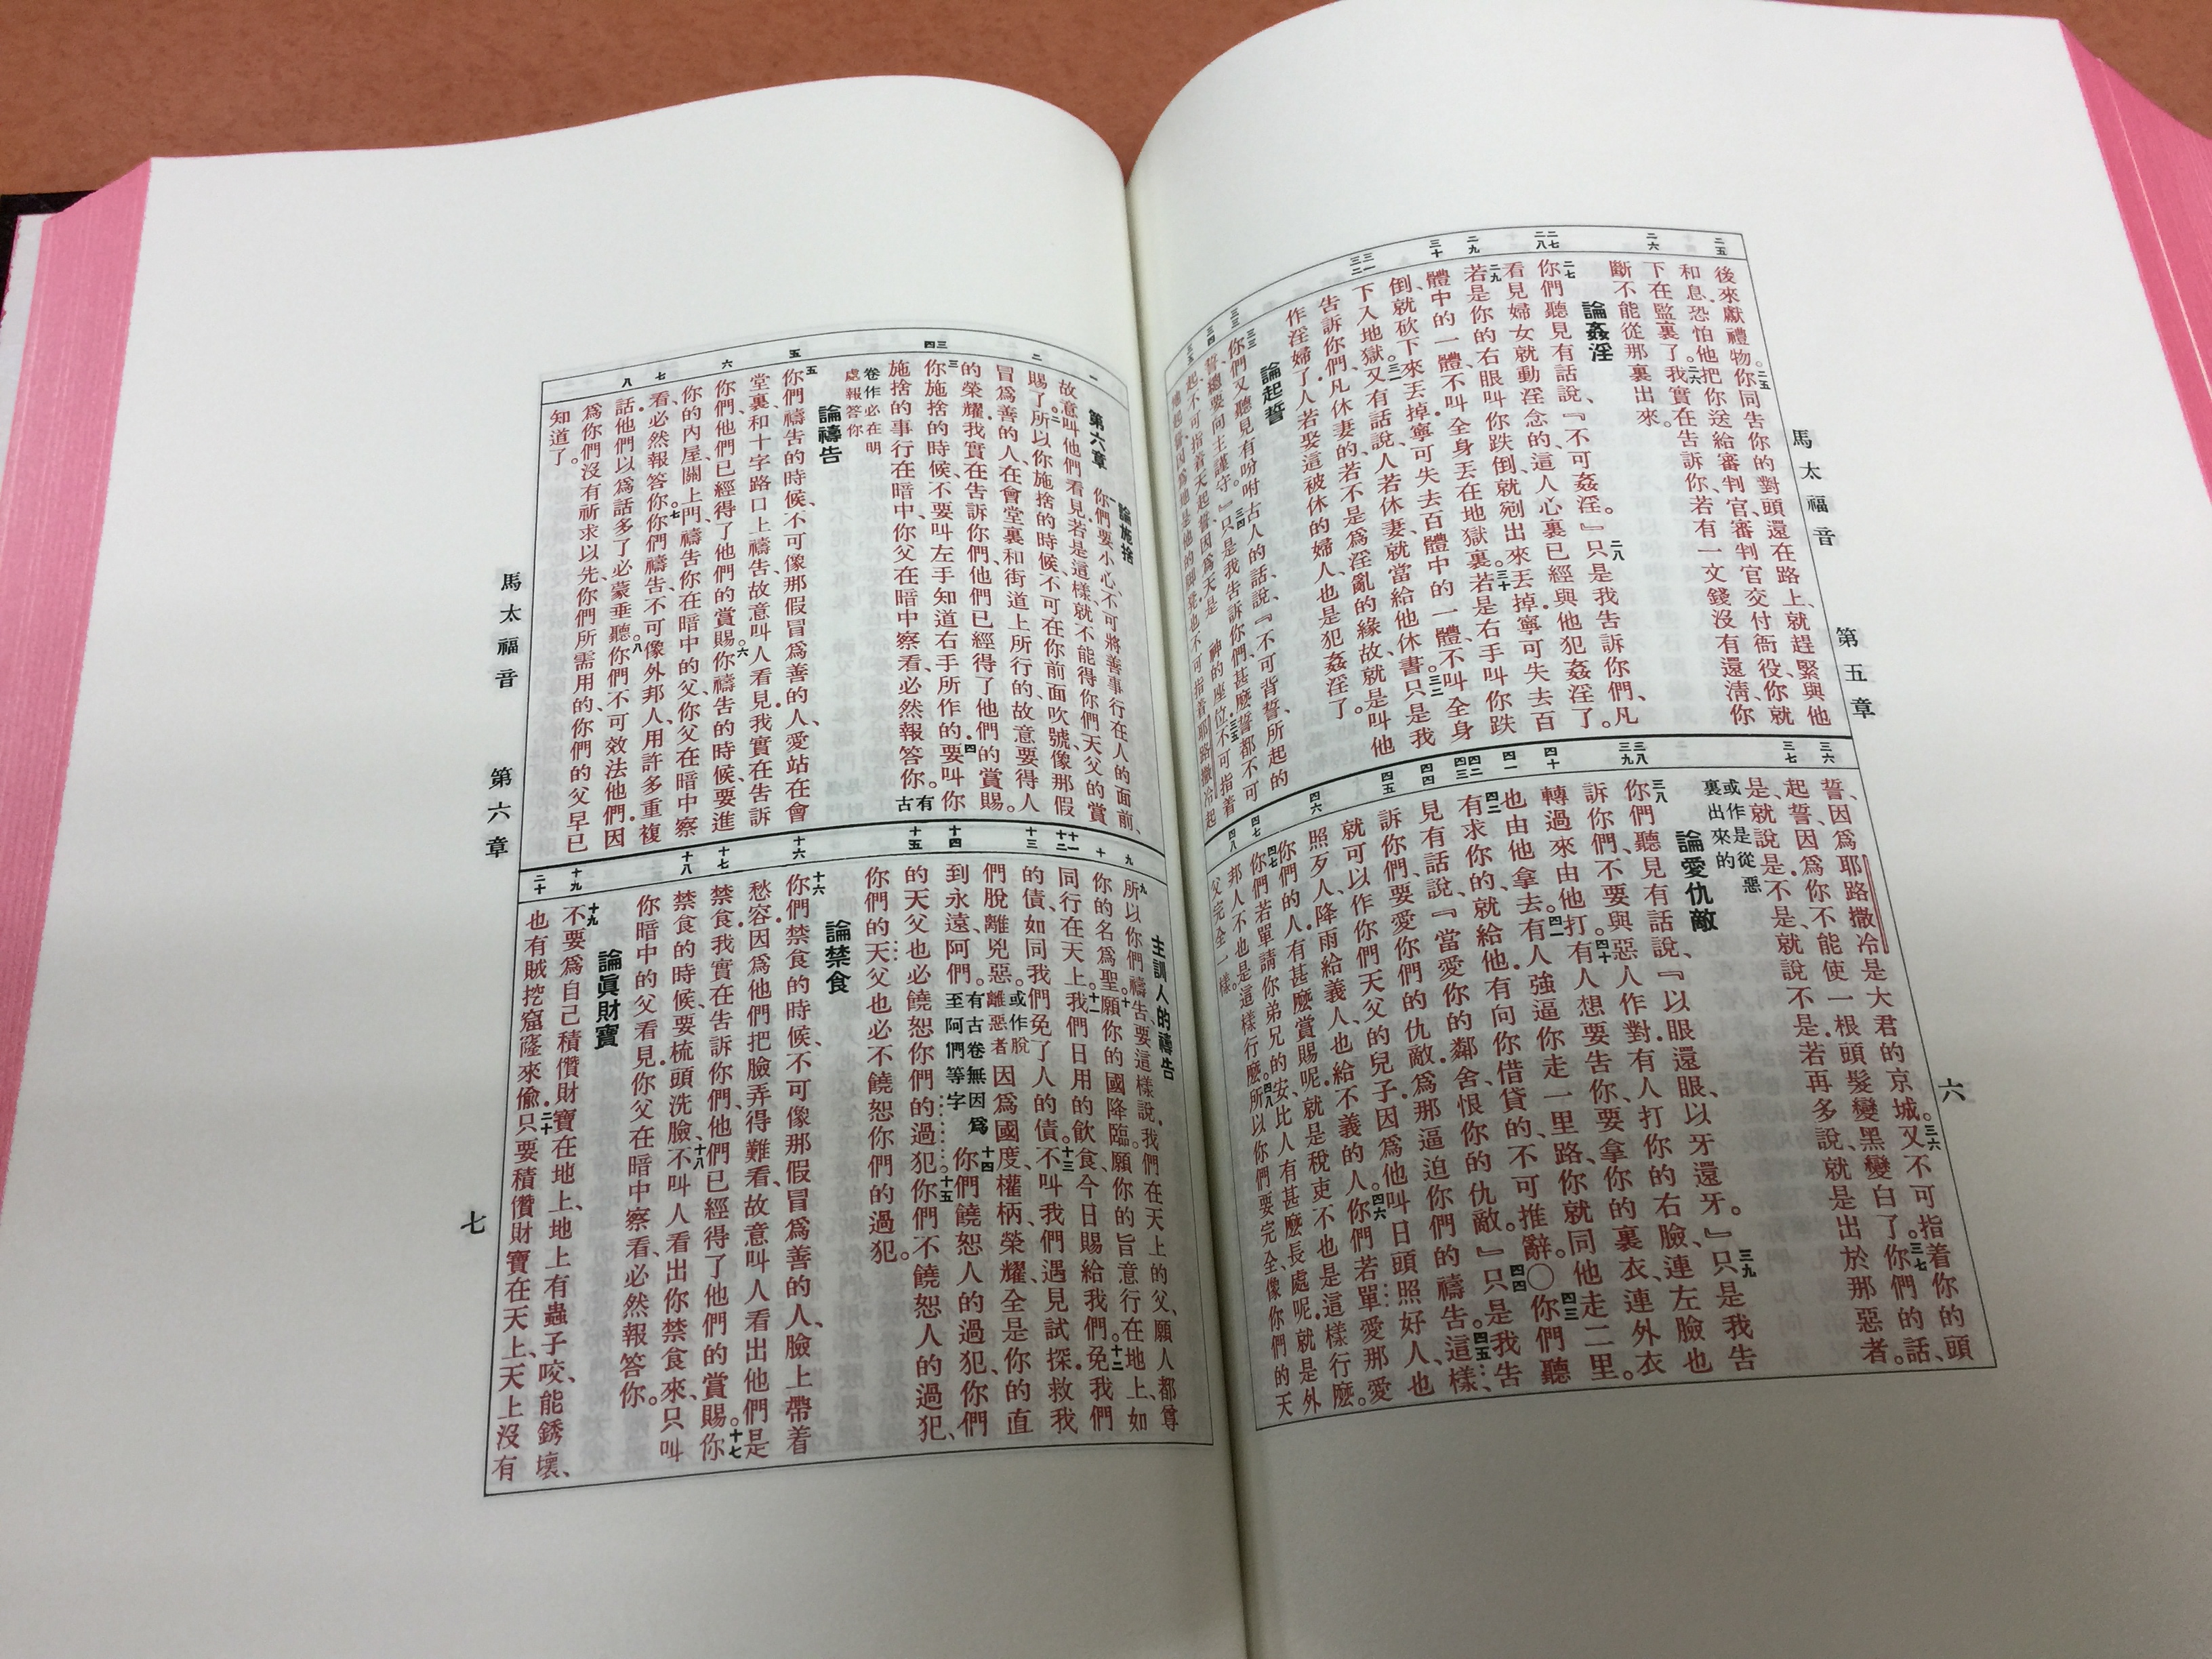 馬太福音 第五章 六
二五 二六 二七 二八 二九 三十 三一 三二 三三 三四 三五
後來獻禮物。二五你同告你的對頭還在路上、就趕緊與他
和息．恐怕他把你送給審判官、審判官交付衙役、你就
下在監裏了。二六我實在告訴你、若有一文錢沒有還清、你
斷不能從那裏出來。
論姦淫
二七你們聽見有話說、『不可姦淫。』二八只是我告訴你們、凡
看見婦女就動淫念的、這人心裏已經與他犯姦淫了。
二九若是你的右眼叫你跌倒、就剜出來丟掉．寧可失去百
體中的一體、不叫全身丟在地獄裏。三十若是右手叫你跌
倒、就砍下來丟掉．寧可失去百體中的一體、不叫全身
下入地獄。三一又有話說、人若休妻、就當給他休書。三二只是我
告訴你們、凡休妻的、若不是爲淫亂的緣故、就是叫他
作淫婦了．人若娶這被休的婦人、也是犯姦淫了。
論起誓
三三你們又聽見有吩咐古人的話、說、『不可背誓、所起的
誓、總要向主謹守。』三四只是我告訴你們、甚麽誓都不可
起、不可指着天起誓、因爲天是　神的座位．三五不可指着
地起誓、因爲地是他的脚凳．也不可指着耶路撒冷起
三六 三七 三八 三九 四十 四一 四二 四三 四四 四五 四六 四七 四八
誓、因爲耶路撒冷是大君的京城。三六又不可指着你的頭
起誓、因爲你不能使一根頭髮變黑變白了。三七你們的話、
是、就說是．不是、就說不是．若再多說、就是出於那惡者。
或作是從惡
裏出來的
論愛仇敵
三八你們聽見有話說、『以眼還眼、以牙還牙。』三九只是我告
訴你們、不要與惡人作對．有人打你的右臉、連左臉也
轉過來由他打．四十有人想要告你、要拿你的裏衣、連外衣
也由他拿去。四一有人強逼你走一里路、你就同他走二里。
四二有求你的、就給他．有向你借貸的、不可推辭。〇四三你們聽
見有話說、『當愛你的鄰舍、恨你的仇敵。』四四只是我告
訴你們、要愛你們的仇敵．爲那逼迫你們的禱告．四五這樣、
就可以作你們天父的兒子．因爲他叫日頭照好人、也
照歹人、降雨給義人、也給不義的人。四六你們若單愛那愛
你們的人、有甚麽賞賜呢．就是稅吏不也是這樣行麽。
四七你們若單請你弟兄的安、比人有甚麽長處呢．就是外
邦人不也是這樣行麽。四八所以你們要完全、像你們的天
父完全一樣。
馬太福音 第六章 七
一 二 三 四 五 六 七 八
第六章 論施捨
一你們要小心、不可將善事行在人的面前、
故意叫他們看見．若是這樣、就不能得你們天父的賞
賜了。二所以你施捨的時候、不可在你前面吹號、像那假
冒爲善的人、在會堂裏和街道上所行的、故意要得人
的榮耀．我實在告訴你們、他們已經得了他們的賞賜。
三你施捨的時候、不要叫左手知道右手所作的．四要叫你
施捨的事行在暗中、你父在暗中察看、必然報答你。有古
卷作必在明
處報答你
論禱告
五你們禱告的時候、不可像那假冒爲善的人、愛站在會
堂裏、和十字路口上禱告、故意叫人看見．我實在告訴
你們、他們已經得了他們的賞賜。六你禱告的時候、要進
你的內屋、關上門、禱告你在暗中的父、你父在暗中察
看、必然報答你。七你們禱告、不可像外邦人、用許多重複
話．他們以爲話多了必蒙垂聽。八你們不可效法他們．因
爲你們沒有祈求以先、你們所需用的、你們的父早已
知道了。
九 十 十一 十二 十三 十四 十五 十六 十七 十八 十九 二十
主訓人的禱告
九所以你們禱告、要這樣說．我們在天上的父、願人都尊
你的名爲聖。十願你的國降臨．願你的旨意行在地上、如
同行在天上。十一我們日用的飲食、今日賜給我們。十二免我們
的債、如同我們免了人的債。十三不叫我們遇見試探．救我
們脫離兇惡。或作脫離惡者因爲國度、權柄、榮耀、全是你的、直
到永遠、阿們。有古卷無因爲至阿們等字十四你們饒恕人的過犯、你們
的天父也必饒恕你們的過犯。十五你們不饒恕人的過犯、
你們的天父也必不饒恕你們的過犯。
論禁食
十六你們禁食的時候、不可像那假冒爲善的人、臉上帶着
愁容．因爲他們把臉弄得難看、故意叫人看出他們是
禁食．我實在告訴你們、他們已經得了他們的賞賜。十七你
禁食的時候、要梳頭洗臉．十八不叫人看出你禁食來、只叫
你暗中的父看見．你父在暗中察看、必然報答你。
論眞財寶
十九不要爲自己積儹財寶在地上、地上有蟲子咬、能銹壞、
也有賊挖窟窿來偷．二十只要積儹財寶在天上、天上沒有